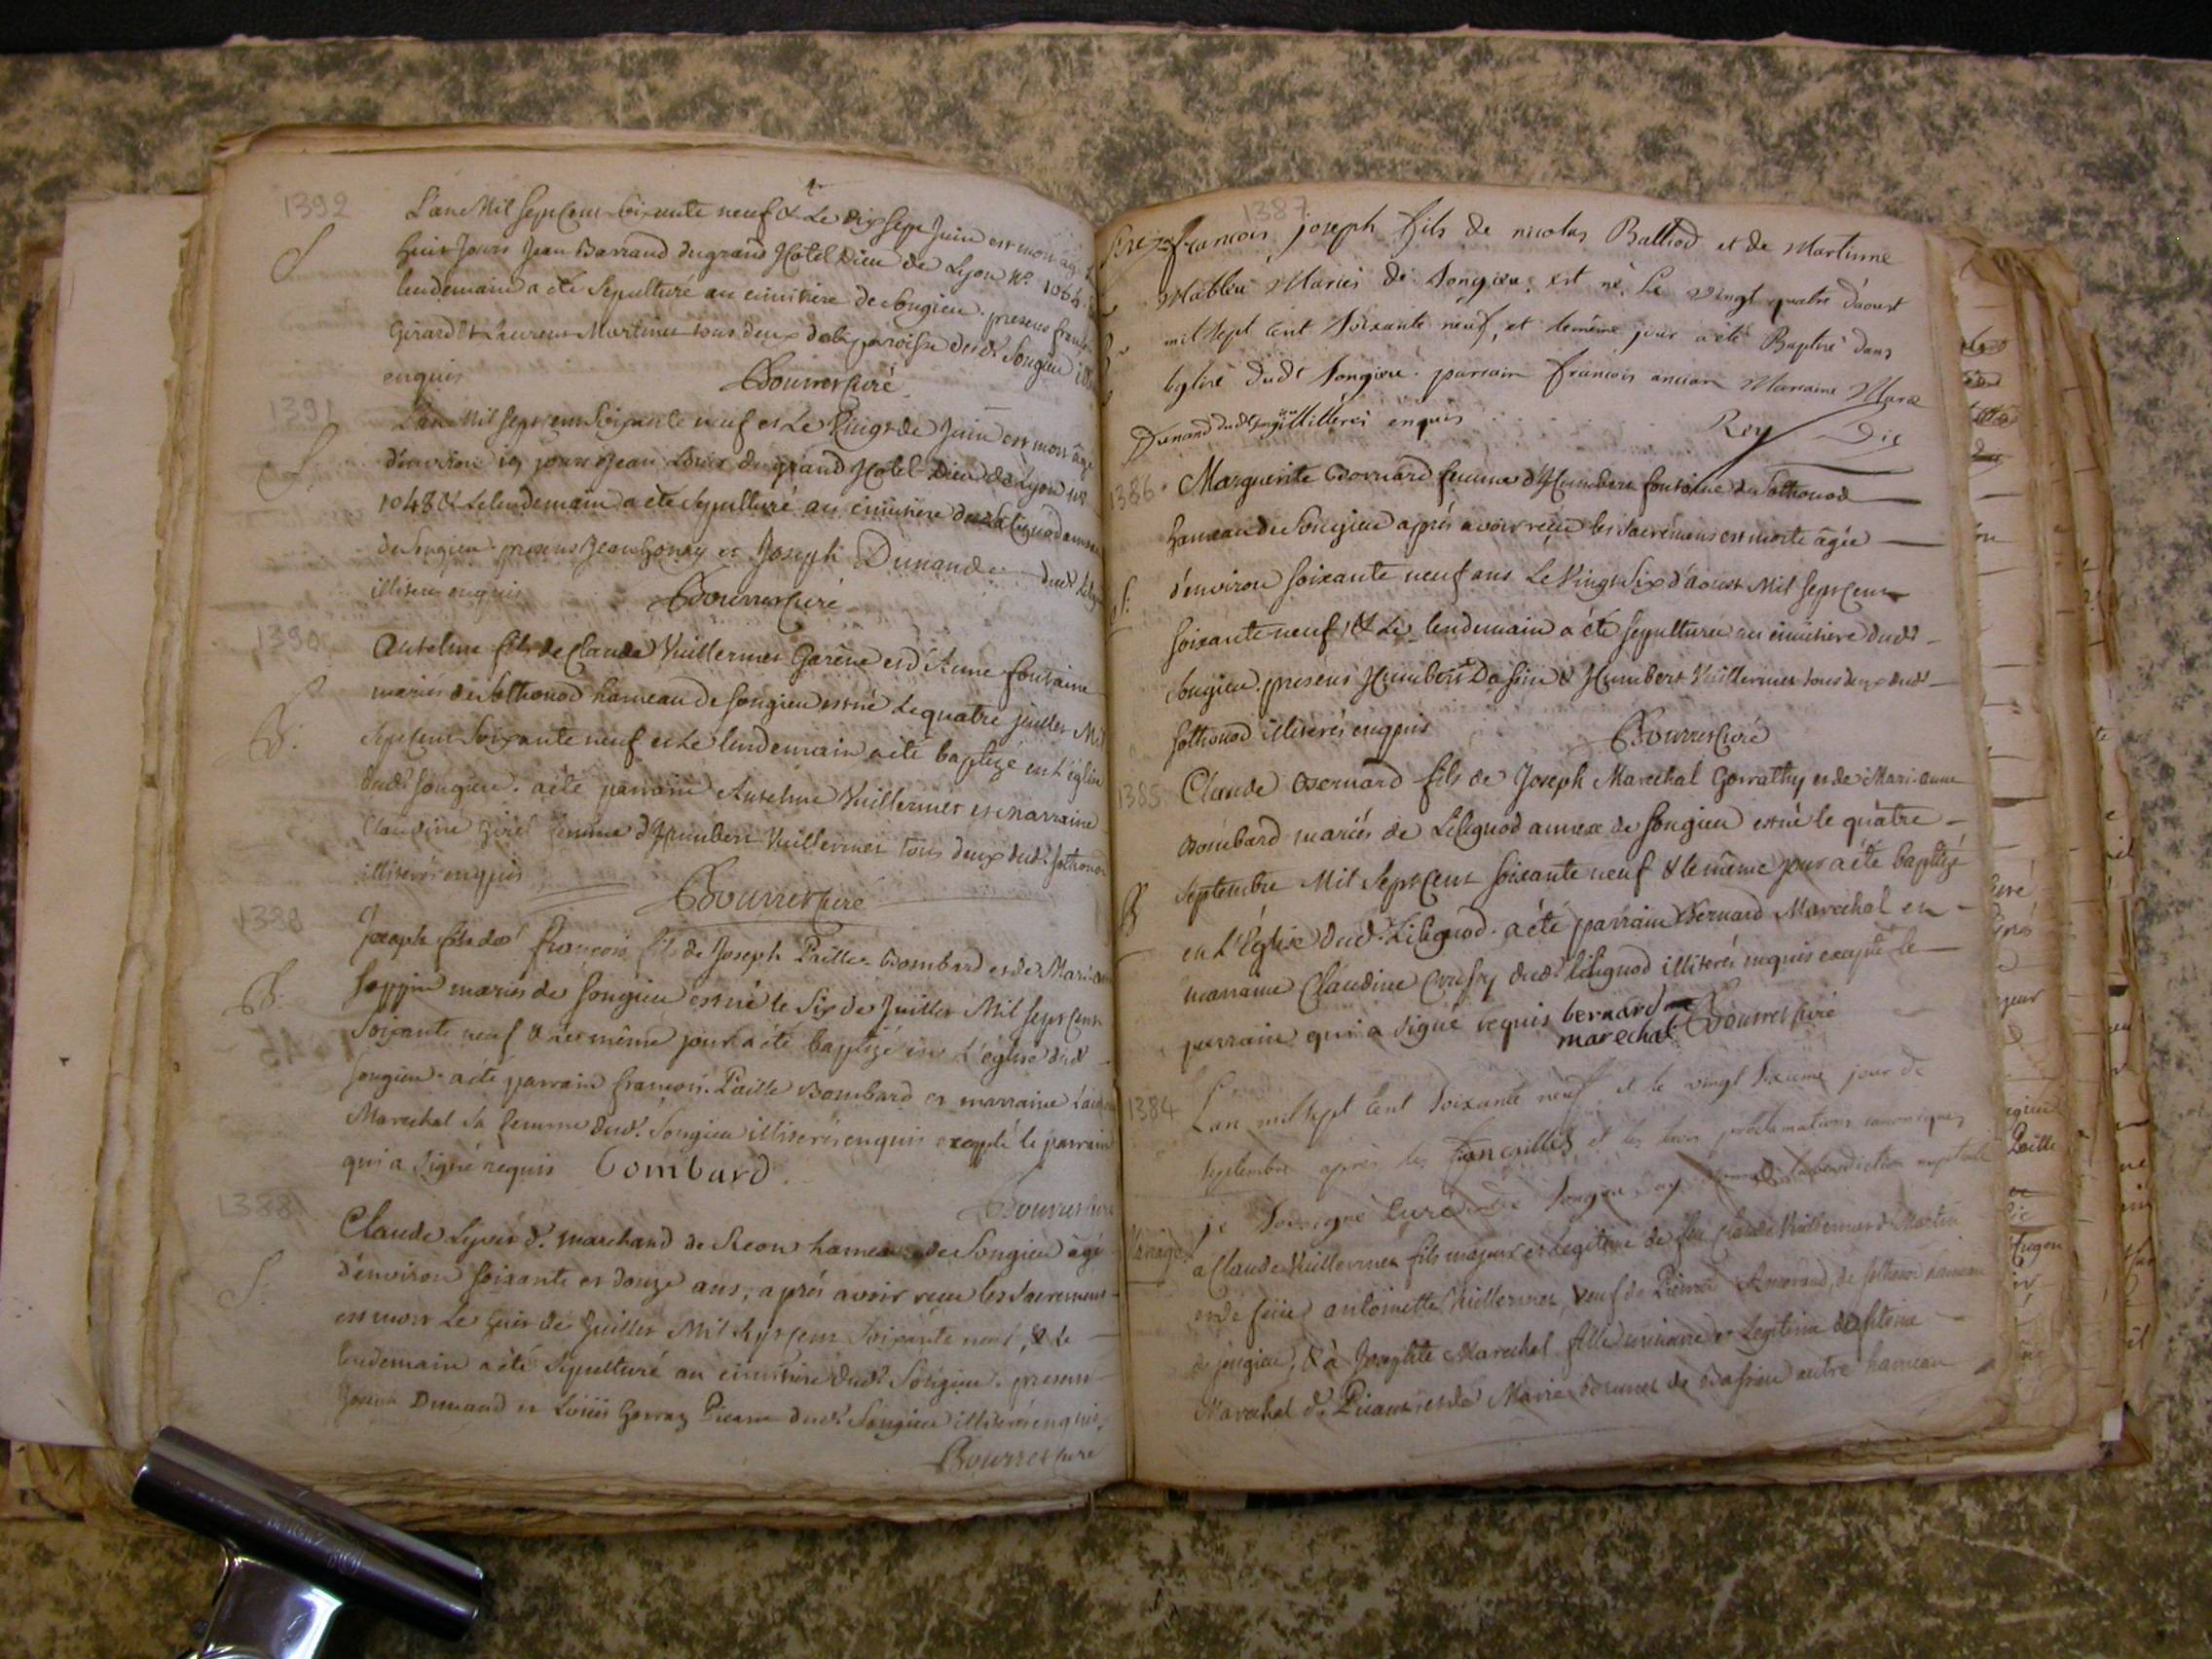 1392
L'an Mil Sept Cent Soixante neuf & Le dix sept Juin est mort âgé
S
huit Jours Jean Barraud du grand Hotel Dieu de Lyon N.º 1064
lendemain a été Sepulturé au cimitiere de Songieu. presens
Girard & Laurent Martinet tous deux de la paroisse dud.t Songieu
enquis
Bourret Curé
1391
L'an Mil Sept Cent Soixante neuf et Le Vingt de Juin est mort âgé
S.
d'environ jours Jean Louis du grand Hotel Dieu de Lyon
1048 & Le lendemain a été Sepulturé au cimitiere de
de Songieu. presens Jean Gonay et Joseph Dunand dud.t
illiterés enquis
Bourret Curé
1390
Anselme fils de Claude Vuillermet Garene et d'Anne fontaine
mariés de Sothonod hameau de Songieu est né Le quatre juillet Mil
B.
Sept Cent Soixante neuf et Le lendemain a été baptizé en L'église
dud.t Songieu. a été parrain Anselme Vuillermet et Marraine
Claudine Girel femme d'Humbert Vuillermet tous deux dud.t Sothonod
illiterés enquis
Bourret Curé
1389
Joseph fils de françois fils de Joseph Paille Bombard et de
Seppin mariés de Songieu est né le Six de Juillet Mil Sept Cent
B.
Soixante neuf & Le même jour a été baptizé en L'église dud.t
Songieu. a été parrain françois Paille Bombard et marraine
Marechal Sa femme dud.t Songieu illiterés enquis excepté le parrain
qui a Signé requis Bombard
Bourret Curé
1388
Claude Seyvet d.t marchand de Reon hameau de Songieu âgé
d'environ Soixante et douze ans, aprés avoir reçu les Sacremens
S.
est mort Le huit de Juillet Mil Sept Cent Soixante neuf, & Le
lendemain a été Sepulturé au cimitiere dud.t Songieu. presens
Joseph Dunand et Loüis Gorraz Pierre dud.t Songieu illiterés enquis.
Bourret Curé
1387
françois joseph fils de nicolas Balliod et de Martinne
Mablou Mariés de Songieu; est né Le vingt quatre d'aoust
mil Sept Cent Soixante neuf, et le même jour a été Baptisé dans
leglise dudt Songieu. parrain francois ancian Marraine Marie
Dunand dudt Songieu illiterés enquis
Rey
1386
Marguerite Bornard femme d'Humbert fontaine de Sothonod
hameau de Songieu aprés avoir reçu les sacremens est morte âgée
S.
d'environ soixante neuf ans Le Vingt Six d'aoust Mil Sept Cent
soixante neuf, & Le lendemain a été sepulturée au cimitiere dud.t
Songieu. presens Humbert Dasin & Humbert Vuillermet tous deux dud.t
Sothonod illiterés enquis
Bourret Curé
1385
Claude Bernard fils de Joseph Marechal Gorrathy et de Marianne
Bombard mariés de Lilignod annexe de Songieu est né le quatre
B
Septembre Mil Sept Cent Soixante neuf & le même jour a été baptizé
en L'Église dud.t Lilignod. a été parrain Bernard Marechal et
marraine Claudine dud.t lilignod illiterés enquis excepté le
parrain qui a signé requis bernard
marechal Bourret Curé
1384
L'an mil Sept Cent Soixante neuf, et le vingt Sixieme jour de
Septembre après les fiançailles et les trois proclamations canoniques
je Soussigné Curé de Songieu ay donné la benediction nuptiale
Mariage
a Claude Vuillermet fils majeur et legitime de feu Claude Vuillermet d.t Martin
et de feüe antoinette Vuillermet, veuf de Pierrette Amorand, de Sothonod hameau
de Songieu, & à Josephte Marechal fille mineure et legitime d'
Marechal d.t et de Marie Brunet de autre hameau